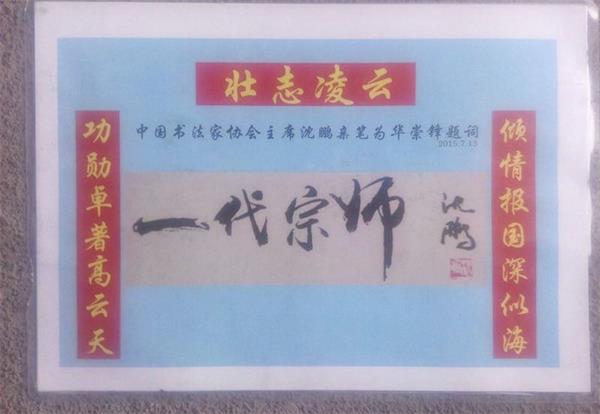 壮志凌云
中国书法家协会主席沈鹏亲笔为华崇锋题词
2015.7.13
倾情报国深似海
功勋卓著高云天
一代宗师
沈鹏